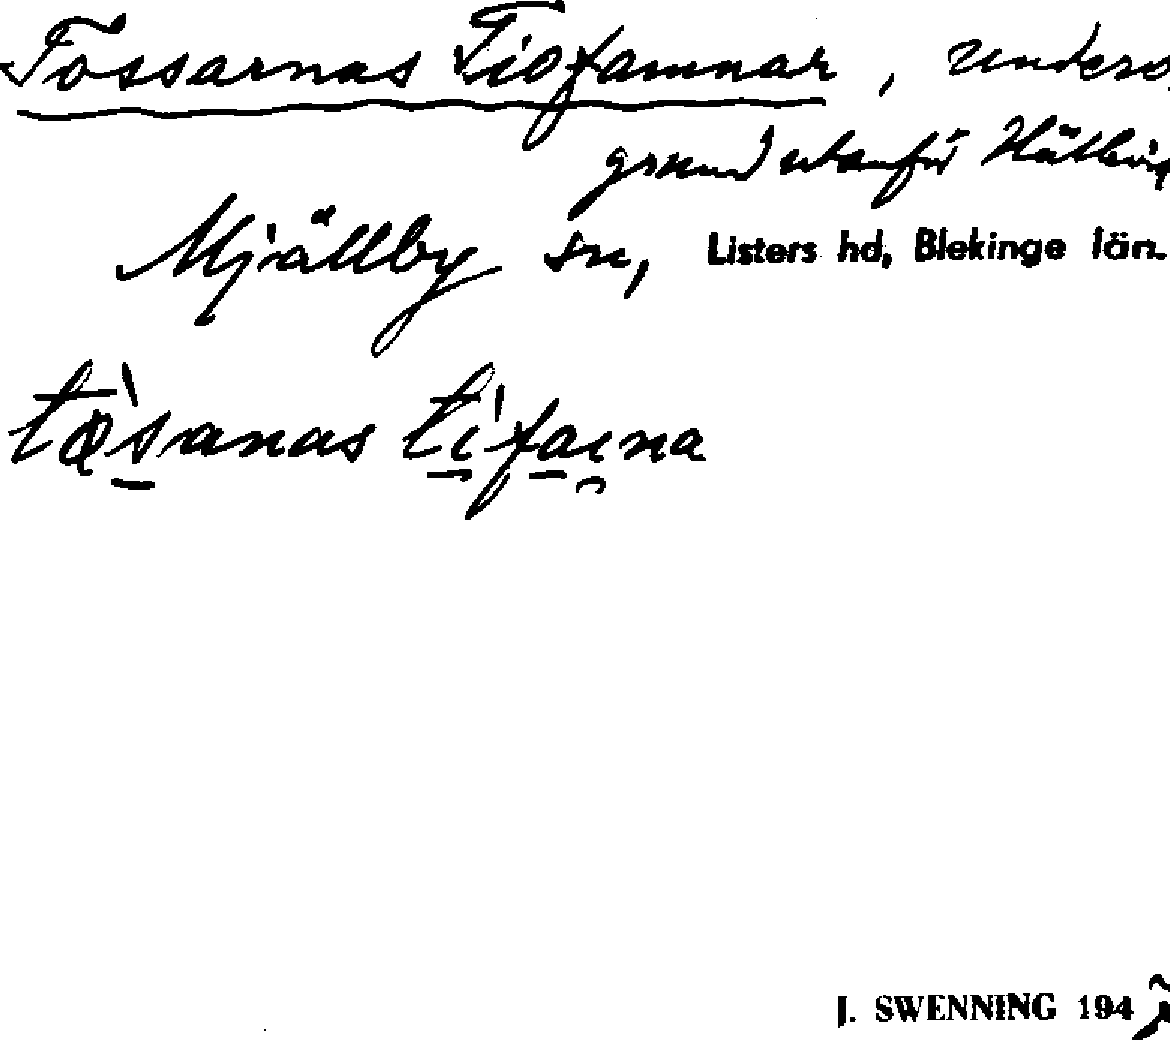 Tossarnas Tiofamnar, unders
grund utanför Hällevi
Mjällby sn, Listers hd, Blekinge län.
J. SWENNING 194